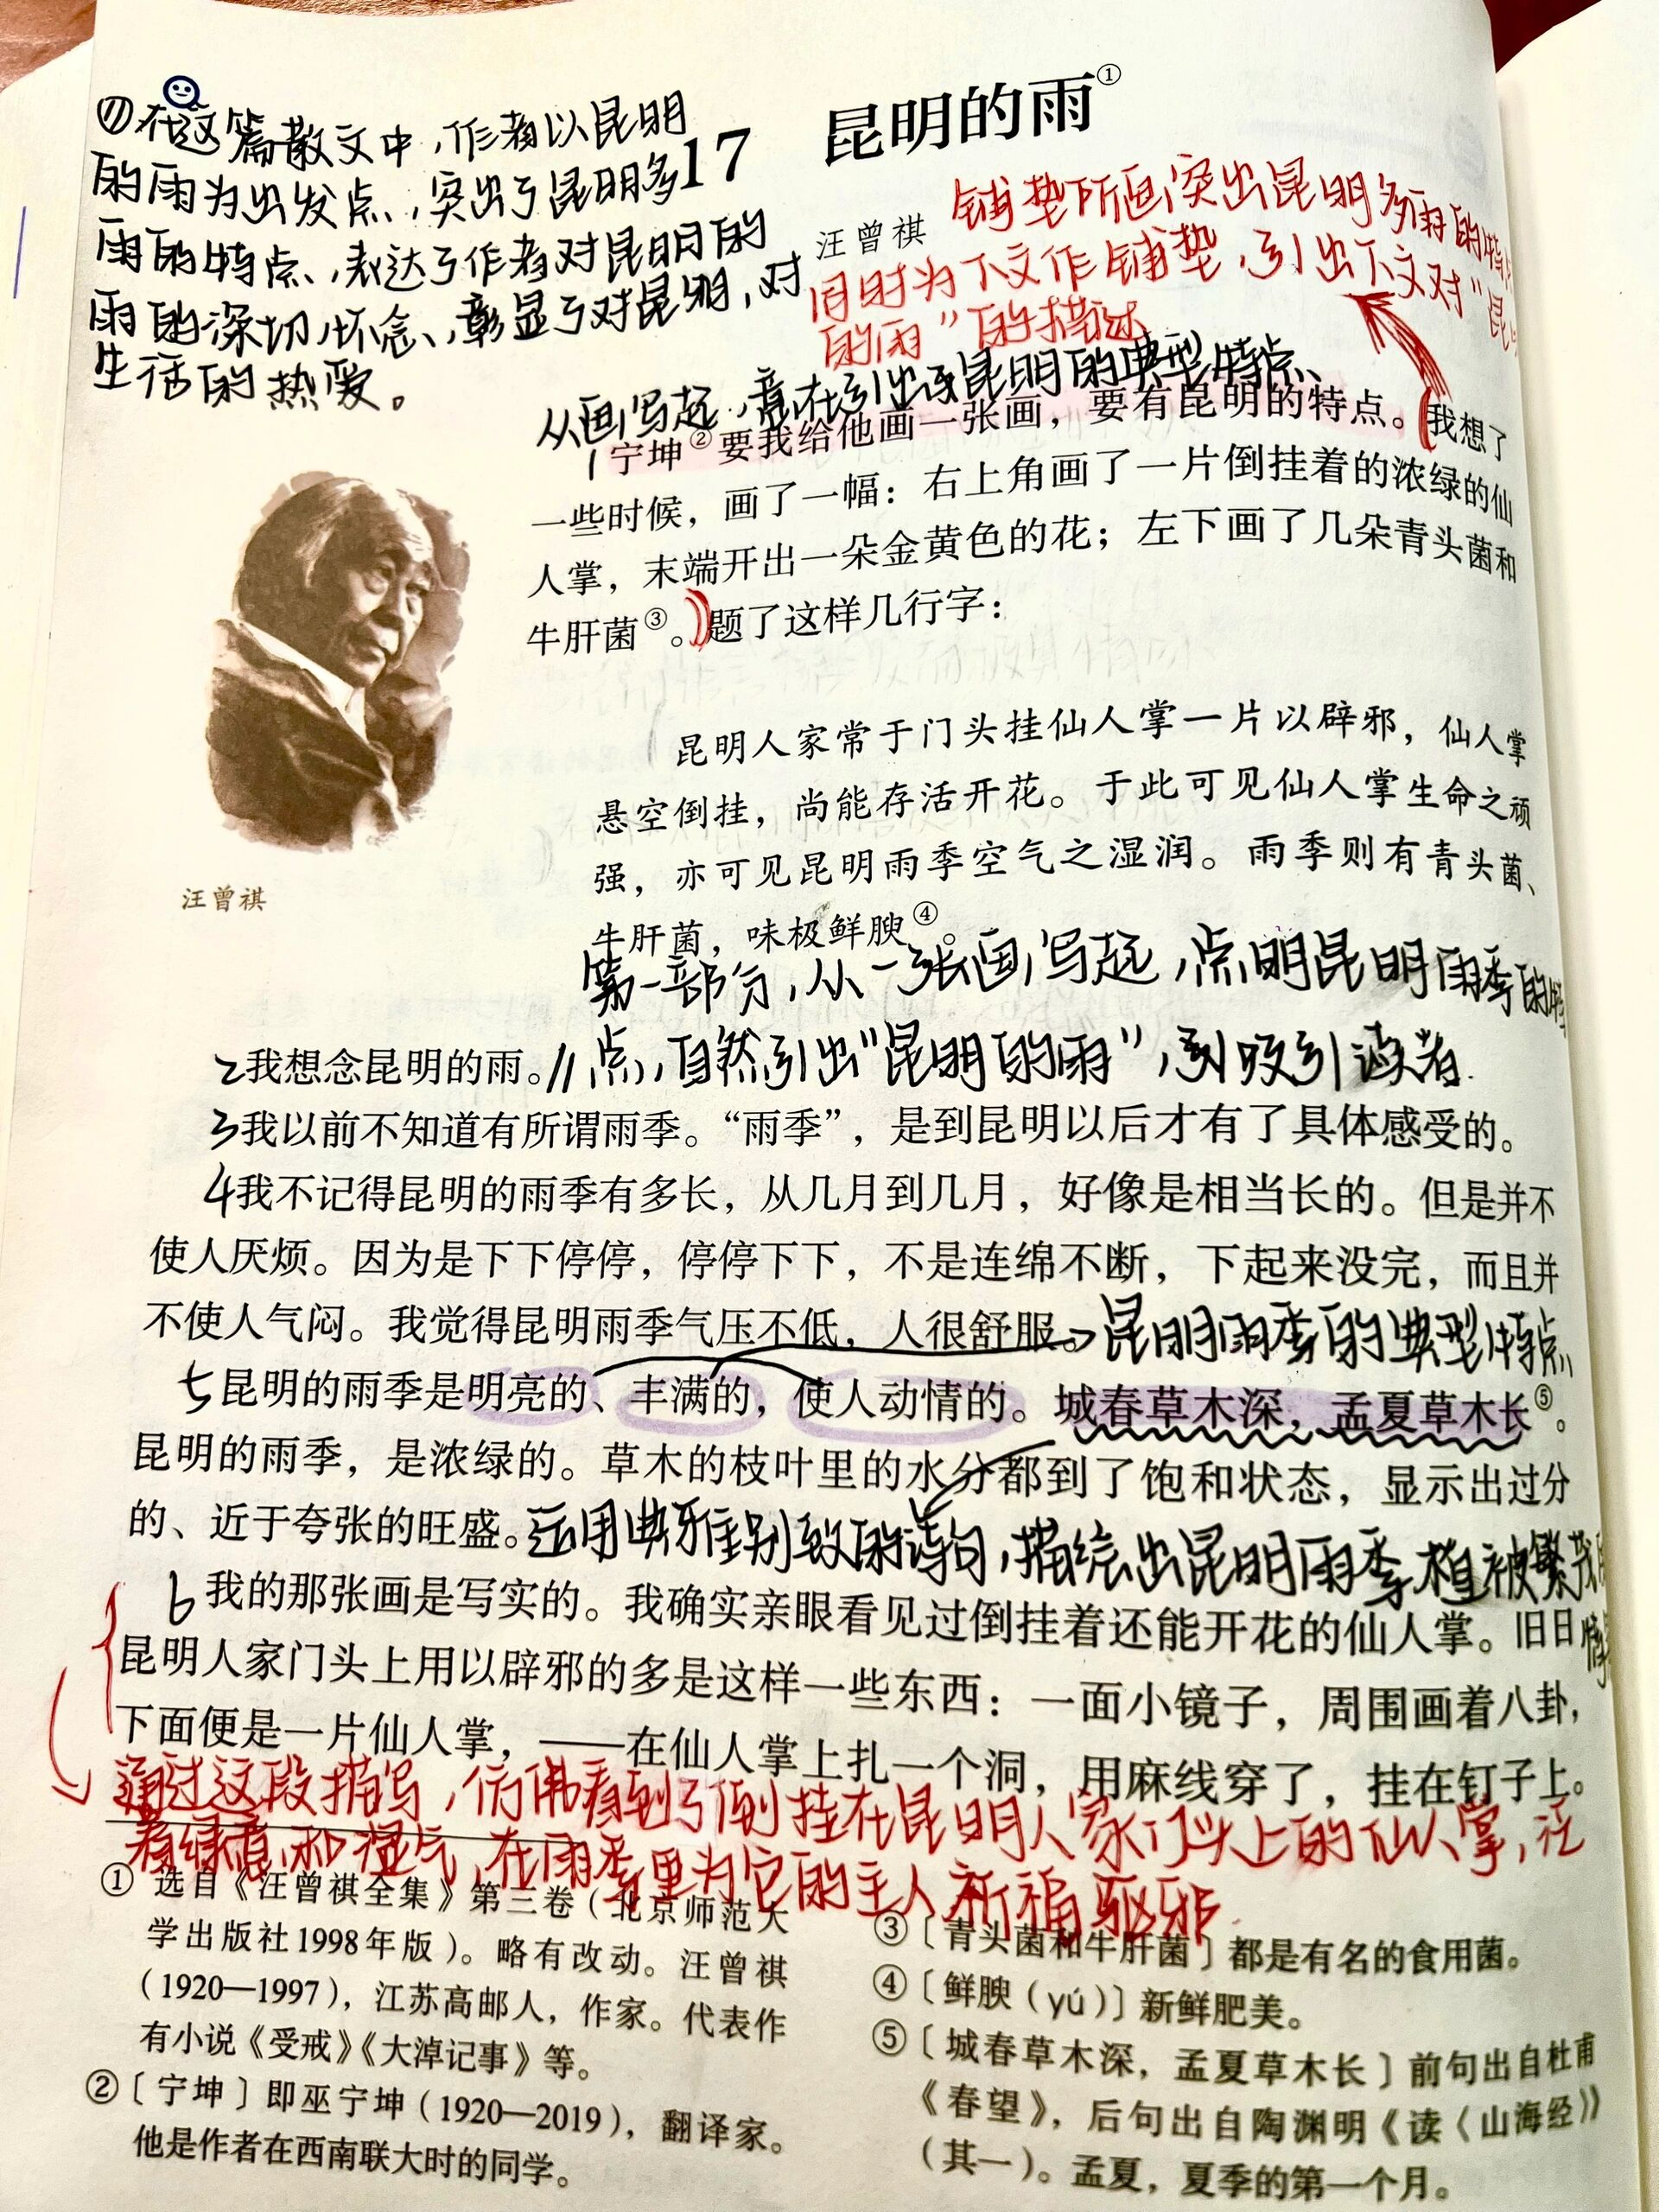 ⑴在这篇散文中,作者以昆明
的雨为出发点,突出了昆明多
雨的特点,表达了作者对昆明的
雨的深切怀念,彰显了对昆明,对
生活的热爱。
17 昆明的雨①
汪曾祺
铺垫所画,突出昆明多雨的特
同时为下文作铺垫,引出下文对“昆
的雨”的描述
从画写起,意在引出昆明的典型特点
1宁坤②要我给他画一张画,要有昆明的特点。我想了
一些时候,画了一幅:右上角画了一片倒挂着的浓绿的仙
人掌,末端开出一朵金黄色的花;左下画了几朵青头菌和
牛肝菌③。题了这样几行字:
汪曾祺
昆明人家常于门头挂仙人掌一片以辟邪,仙人掌
悬空倒挂,尚能存活开花。于此可见仙人掌生命之顽
强,亦可见昆明雨季空气之湿润。雨季则有青头菌、
牛肝菌,味极鲜腴④。
第一部分,从一张画写起,点明昆明雨季的特
点,自然引出“昆明的雨”,吸引读者.
2我想念昆明的雨。//
3我以前不知道有所谓雨季。“雨季”,是到昆明以后才有了具体感受的。
4我不记得昆明的雨季有多长,从几月到几月,好像是相当长的。但是并不
使人厌烦。因为是下下停停,停停下下,不是连绵不断,下起来没完,而且并
不使人气闷。我觉得昆明雨季气压不低,人很舒服。
昆明雨季的典型特点
5昆明的雨季是明亮的、丰满的,使人动情的。城春草木深,孟夏草木长⑤。
昆明的雨季,是浓绿的。草木的枝叶里的水分都到了饱和状态,显示出过分
的、近于夸张的旺盛。
运用典雅别致的诗句,描绘出昆明雨季植被繁茂的
特
6我的那张画是写实的。我确实亲眼看见过倒挂着还能开花的仙人掌。旧日
昆明人家门头上用以辟邪的多是这样一些东西:一面小镜子,周围画着八卦,
下面便是一片仙人掌,——在仙人掌上扎一个洞,用麻线穿了,挂在钉子上。
通过这段描写,仿佛看到了倒挂在昆明人家门头上的仙人掌,泛
着绿意和湿气,在雨季里为它的主人祈福驱邪
① 选自《汪曾祺全集》第三卷(北京师范大
学出版社1998年版)。略有改动。汪曾祺
(1920—1997),江苏高邮人,作家。代表作
有小说《受戒》《大淖记事》等。
②〔宁坤〕即巫宁坤(1920—2019),翻译家。
他是作者在西南联大时的同学。
③〔青头菌和牛肝菌〕都是有名的食用菌。
④〔鲜腴(yú)〕新鲜肥美。
⑤〔城春草木深,孟夏草木长〕前句出自杜甫
《春望》,后句出自陶渊明《读〈山海经〉》
(其一)。孟夏,夏季的第一个月。